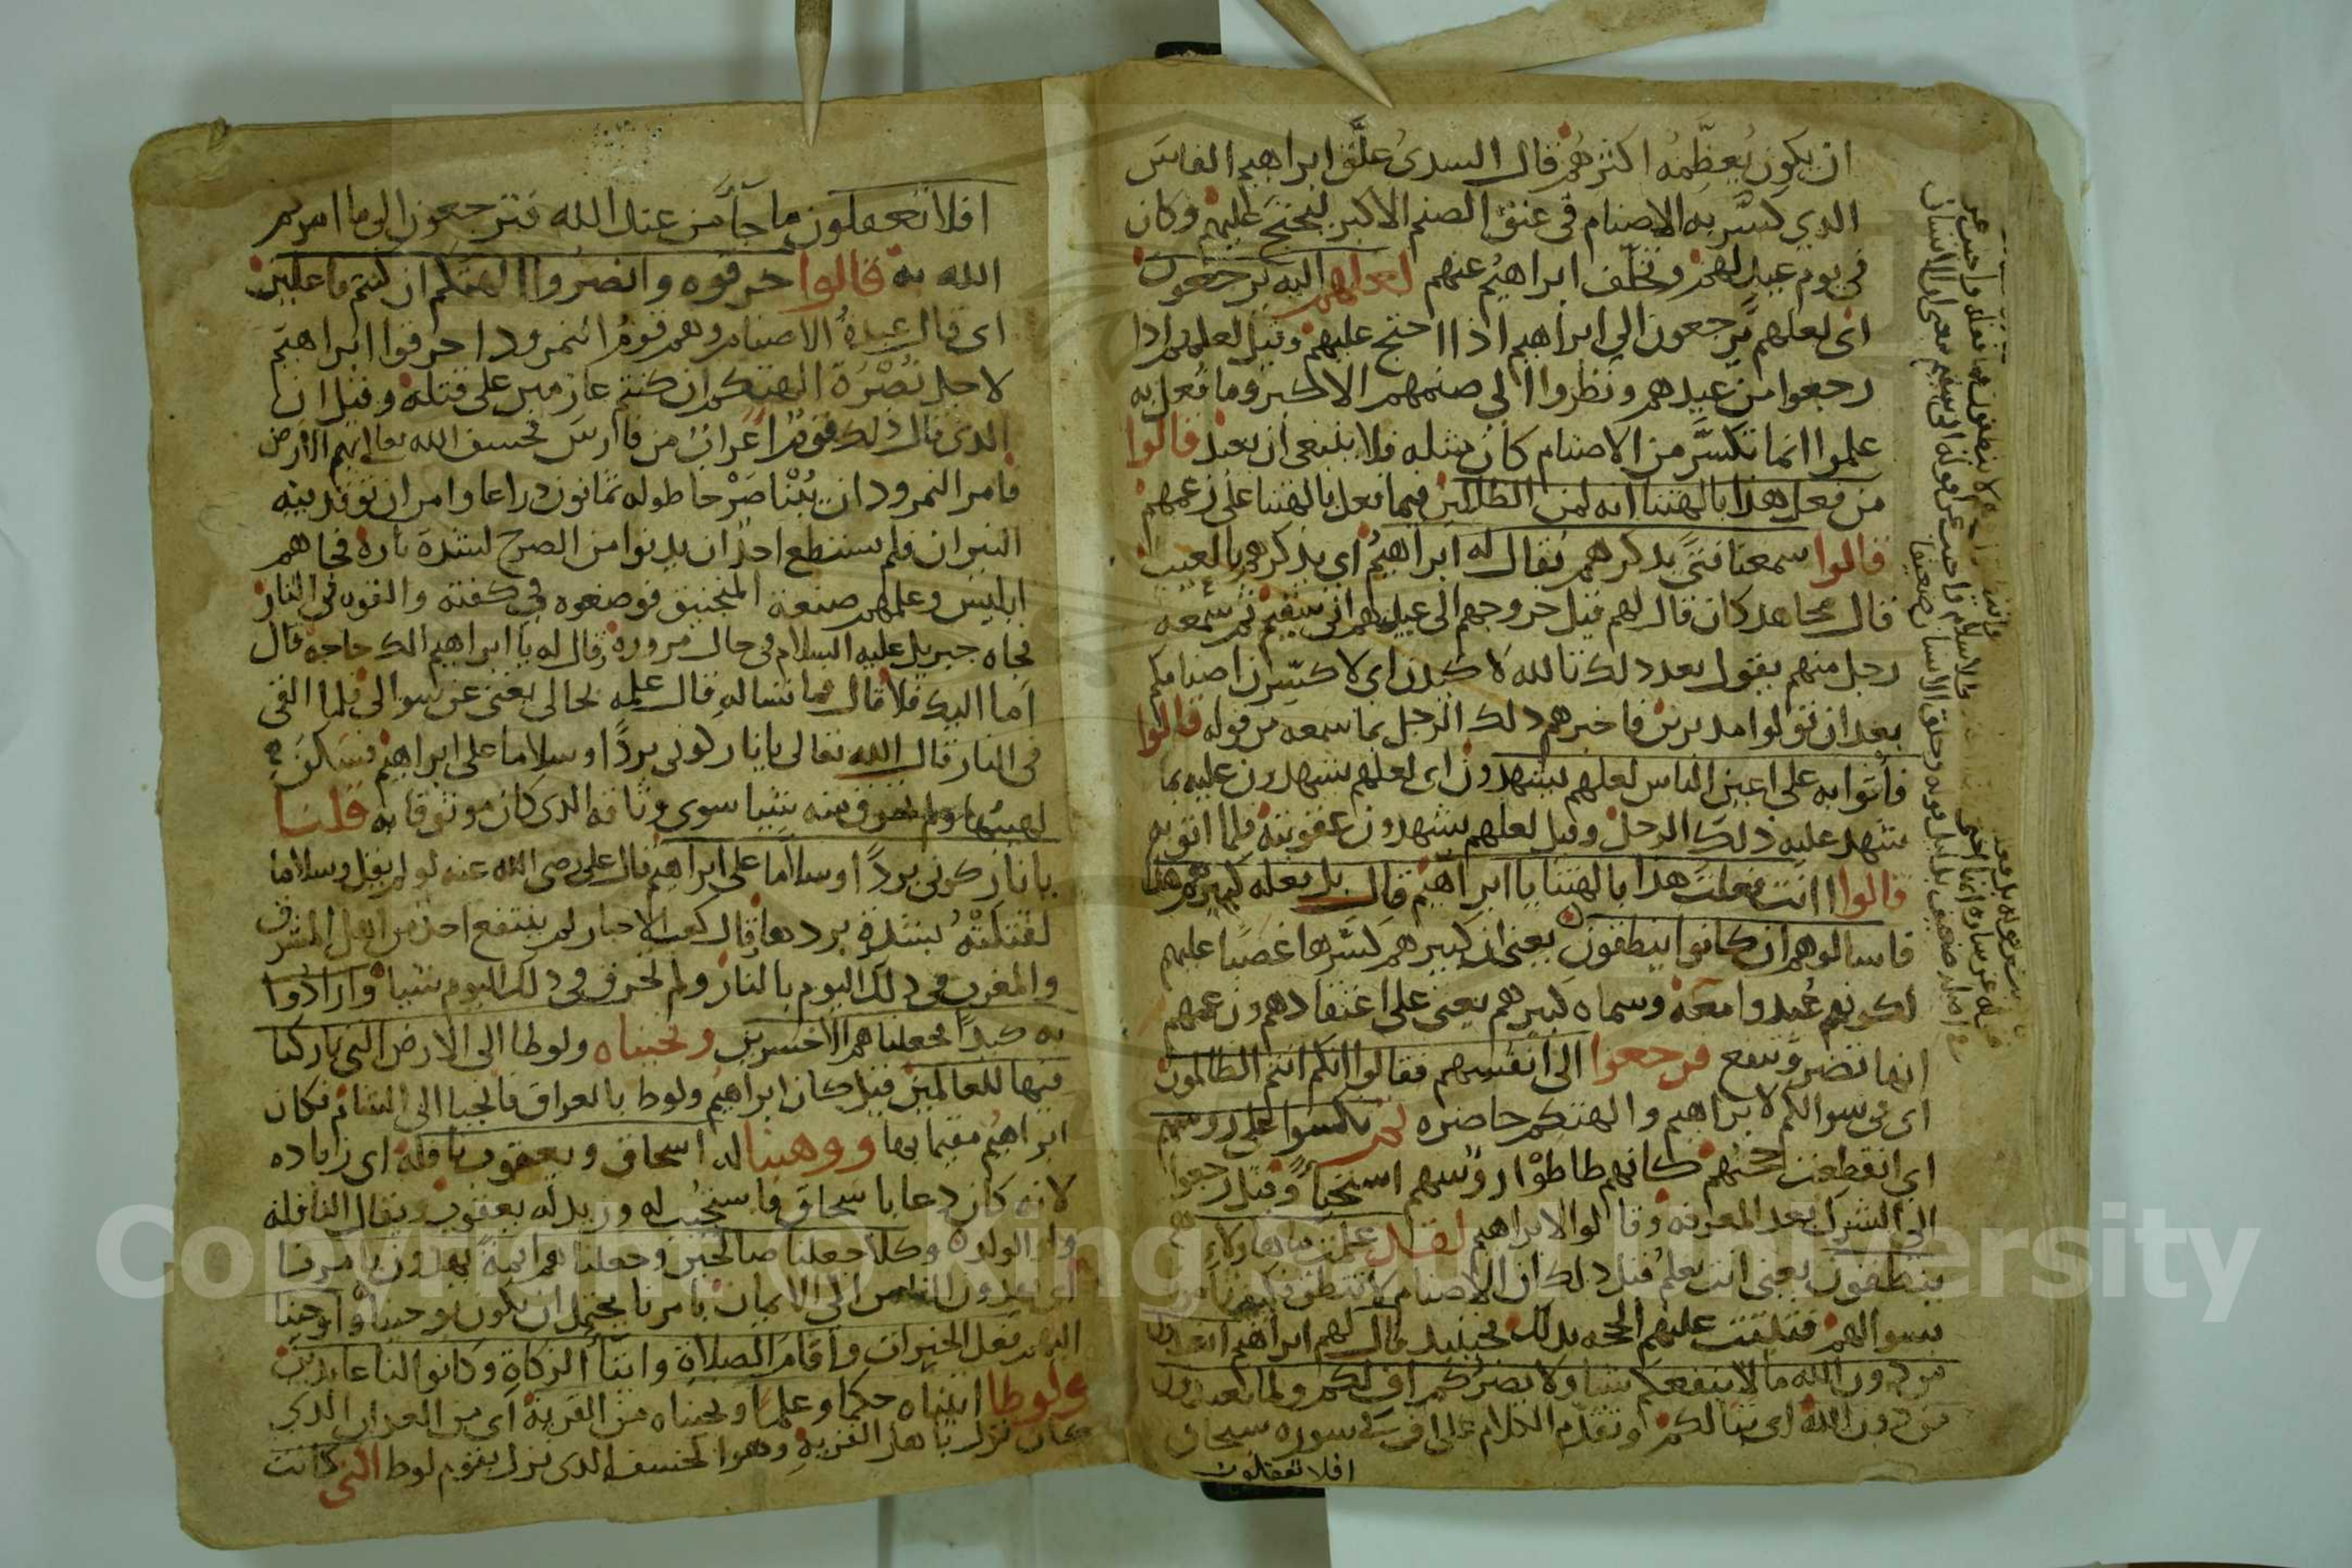 ان يكون يُعظِّمهُ اكثرهُم قال السدىُ علَّق ابراهيم الفاسَ
الذي كسَّر به الاصنام في عنق الصنم الاكبر ليحتج عليهم وكان
في يوم عيد لهم وتخلَّف ابراهيمُ عنهم لعلهم اليه يرجعون
اى لعلهم يرجعون الى ابراهيم اذا احتج عليهم وقيل لعلهم اذا
رجعوا من عيدهم ونظروا الى صنمهم الاكبر وما فُعل به
علموا انما تكسَّر من الاصنام كان مثله فلا ينبغى ان يعبد قالوا
من فعل هذا بالهتنا انه لمن الظالمين فيما فعل بالهتنا على زعمهم
قالوا سمعنا فتىً يذكرهم يقال له ابراهيمُ اى يذكرهم بالعيب
قال مجاهد كان قال لهم قبل خروجهم الى عيدهم انى سقيم ثم سمعه
رجل منهم يقول بعد ذلك تالله لاكيدن اى لاكسِّرن اصنامكم
بعد ان تولوا مدبرين فاخبرهم ذلك الرجل بما سمعه من قوله قالوا
فأتوا به على اعين الناس لعلهم يشهدون اى لعلهم يشهدون عليه بما
شهد عليه ذلك الرجل وقيل لعلهم يشهدون عقوبته فلما اتو به
قالوا اانت فعلت هذا بالهتنا يا ابراهيم قال بل فعله كبيرهم هذا
فاسالوهم ان كانوا ينطقون يعنى ان كبيرهم كسَّرها غضبا عليهم
لكونهم عُبدوا معَهُ وسماه كبيرهم يعنى على اعتقادهم وزعمهم
انها تضر وتنفع فرجعوا الى انفسهم فقالوا انكم انتم الظالمون
اى فى سوالكم لابراهيم والهتكم حاضره ثم نكسوا على روسهم
اى انقطعت حجتهم كانهم طاطوْا روُسهم استحياً وقيل رجعوا
الى الشرك بعد المعرفه وقالوا لابراهيم لقد علمت ما هاولاءِ
ينطقون يعنى انت تعلمُ قبل ذلك ان الاصنام لا تنطق فكيف تامر
بسوالهم فثبتت عليهم الحجه بذلك فحينيذ قال لهم ابراهيم افتعبدون
من دون الله ما لا ينفعكم شيا ولا يضرُكم اف لكم ولما تعبدون
من دون الله اى تبا لكم وتقدَّم الكلام على اف فى سوره سبحان
افلا تعقلون
افلا تعقلون ما جآَ من عند الله فترجعون الى ما امركم
الله به قالوا حرقوه وانصُروا الهتكم ان كنتم فاعلين
اى قال عبدةُ الاصنام وهم قومُ النمرود احرقوا ابراهيم
لاجل نُصْرَة الهتكم ان كنتم عازمين على قتله وقيل ان
الذى قال ذلك قومٌ اعراب من فارسَ فخسف الله تعالى بهم الارض
فامر النمرود ان يُبْنا صَرْحا طوله ثمانون دراعا وامر ان توقد فيه
النيران فلم يستطع احدٌ ان يدنوا من الصرح لشدة ناره فجاهم
ابليس وعلمهم صنعة المنجنيق فوضعوه في كفته والقوه فى النار
فجاه جبريل عليه السلام فى حال مروره فقال له يا ابراهيم الك حاجه قال
اما اليك فلا قال فما تساله قال علمه بحالى يغنى عن سوالى فلما القى
فى النار قال الله تعالى يانار كونى بردًا وسلاما على ابراهيم فسَكنَ
لهيبُها ولم تحرق منه شيا سوى وثاقه الذى كان موثوقا به قلنا
يا نار كونى بردًا وسلاما على ابراهيم قال على رضى الله عنه لو لم يقل وسلاما
لقتلتْهُ بشدة بردها وقال كعب الاحبار لم ينتفع احدٌ من اهل المشرق
والمغرب فى ذلك اليوم بالنار ولم تحرق فى ذلك اليوم شيا وارادُوا
به كيدًا فجعلناهم الاخسرين ونجيناه ولوطا الى الارض التى باركنا
فيها للعالمين قيل كان ابراهيمُ ولوط بالعراق فانجيا الى الشام فكان
ابراهيم مقيما بها ووهبنا له اسحاق ويعقوب نافلة اى زياده
لانه كان دعا باسحاق فاستجيب له وزيد له يعقوب ويقال النافله
ولد الولد وكلاً جعلنا صالحين وجعلناهم ايمةً يهدون بامرنا
اى يهدون الناس الى الايمان بامرنا يحتمل ان يكون وحينا واوحينا
اليهم فعل الخيرات واقام الصلاة وايتآ الزكاة وكانوا لنا عابدين
ولوطا اتيناه حكما وعلمًا ونجيناه من القريةِ اى من العذاب الذي
كان نزل باهل القريةِ وهو الخسف الذى نزل بقوم لوط التى كانت